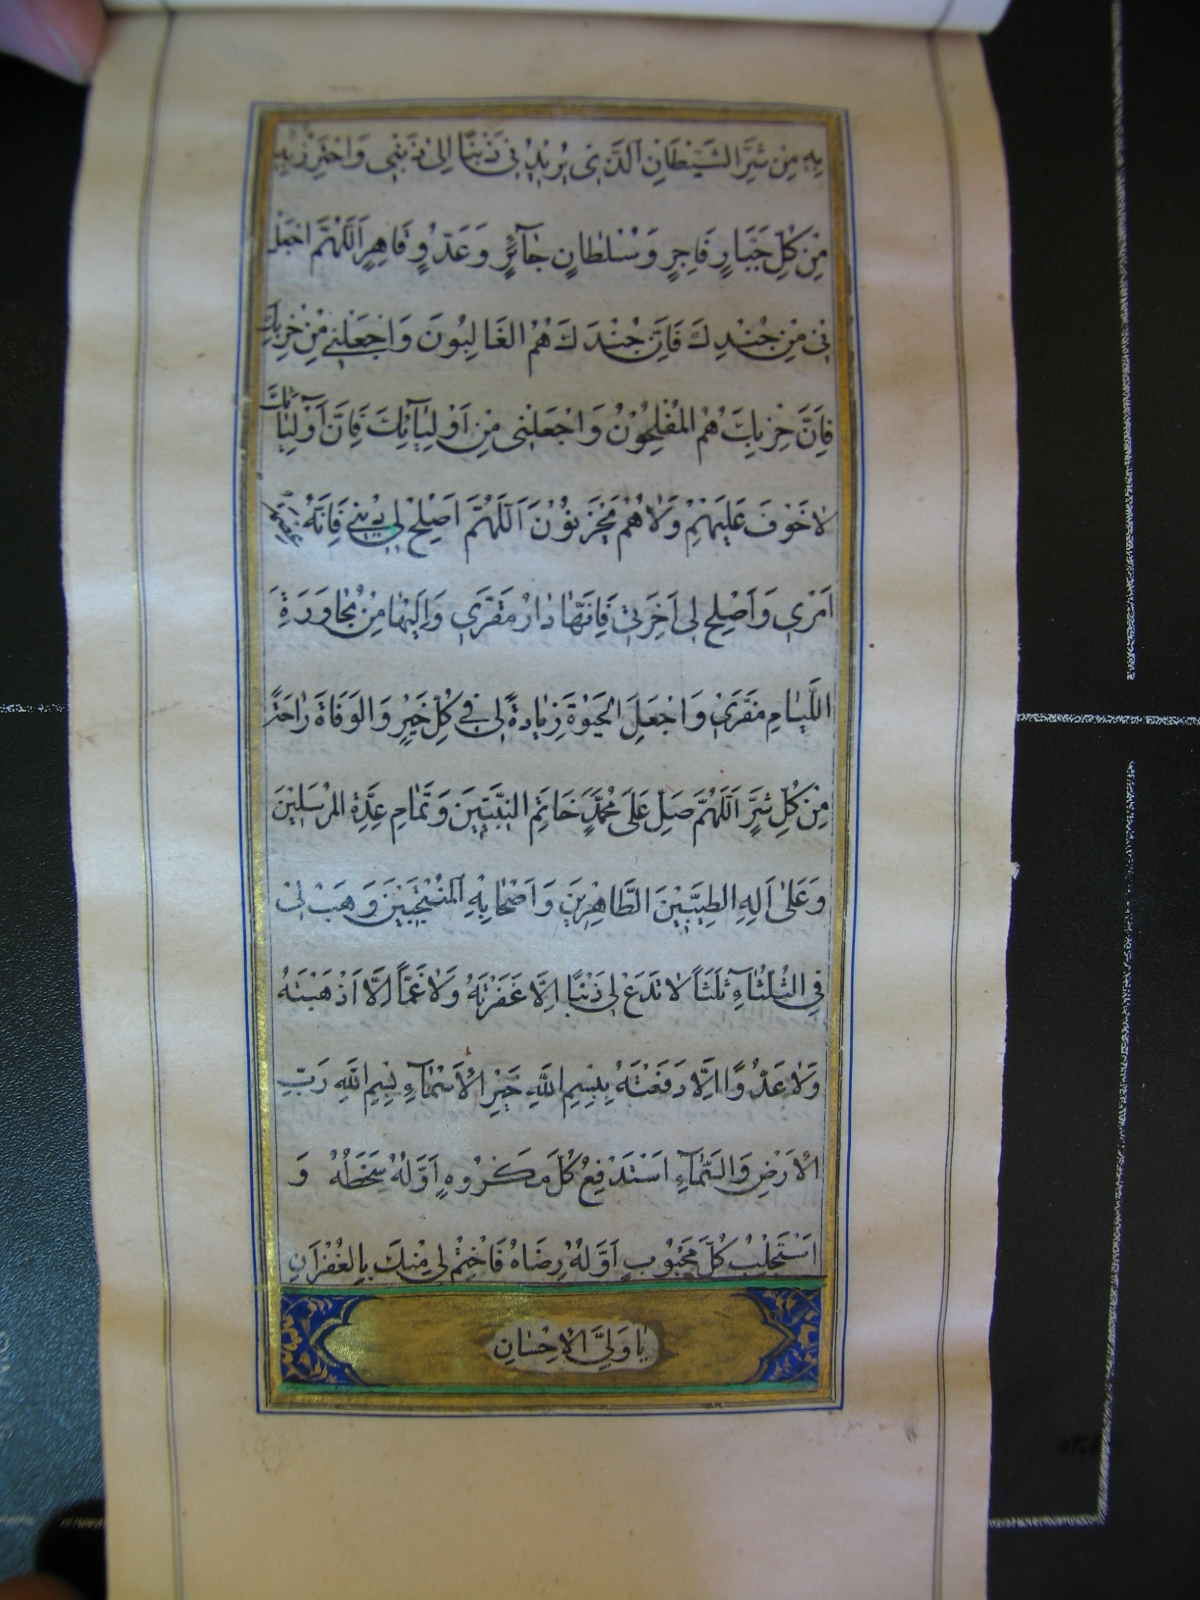 بِهِ مِنْ شَرِّ الشَّيْطَانِ الَّذِی يَزِيدُنِی ذَنْبًا اِلیٰ ذَنْبِی وَاَحْتَرِزُ بِهِ
مِنْ كُلِّ جَبَّارٍ فَاجِرٍ وَسُلْطَانٍ جَآئِرٍ وَعَدُوٍّ قَاهِرٍ اَللّٰهُمَّ اجْعَلْ
نِی مِنْ جُنْدِكَ فَاِنَّ جُنْدَكَ هُمُ الْغَالِبُونَ وَاجْعَلْنِی مِنْ حِزْبِكَ
فَاِنَّ حِزْبَكَ هُمُ الْمُفْلِحُوْنَ وَاجْعَلْنِی مِنْ اَوْلِيَآئِكَ فَاِنَّ اَوْلِيَائَكَ
لَا خَوْفَ عَلَيْهِمْ وَلَاهُمْ يَحْزَنُوْنَ اَللّٰهُمَّ اَصْلِحْ لِی دِينِی فَاِنَّهُ عِصْمَةُ
اَمْرِی وَاَصْلِحْ لِی اٰخِرَتِی فَاِنَّهَا دَارُ مَقَرِّی وَاِلَيْهَا مِنْ مُجَاوَرَةِ
اللِّئَامِ مَفَرِّی وَاجْعَلِ الْحَيٰوةَ زِيَادَةً لِی فِی كُلِّ خَيْرٍ وَالْوَفَاةَ رَاحَةً
مِنْ كُلِّ شَرٍّ اَللّٰهُمَّ صَلِّ عَلیٰ مُحَمَّدٍ خَاتَمِ النَّبِيِّيْنَ وَتَمَامِ عِدَّةِ الْمُرْسَلِيْنَ
وَعَلیٰ اٰلِهِ الطَّيِّبِيْنَ الطَّاهِرِيْنَ وَاَصْحَابِهِ الْمُنْتَجَبِيْنَ وَهَبْ لِی
فِی الثُّلَثَآءِ ثَلٰثًا لَا تَدَعْ لِی ذَنْبًا اِلَّا غَفَرْتَهُ وَلَا غَمًّا اِلَّا اَذْهَبْتَهُ
وَلَا عَدُوًّا اِلَّا دَفَعْتَهُ بِبِسْمِ اللّٰهِ خَيْرِ الْاَسْمَآءِ بِسْمِ اللّٰهِ رَبِّ
الْاَرْضِ وَالسَّمَآءِ اَسْتَدْفِعُ كُلَّ مَكْرُوهٍ اَوَّلُهُ سَخَطُهُ وَ
اَسْتَجْلِبُ كُلَّ مَحْبُوبٍ اَوَّلُهُ رِضَاهُ فَاخْتِمْ لِی مِنْكَ بِالْغُفْرَانِ
يَا وَلِیَّ الْاِحْسَانِ